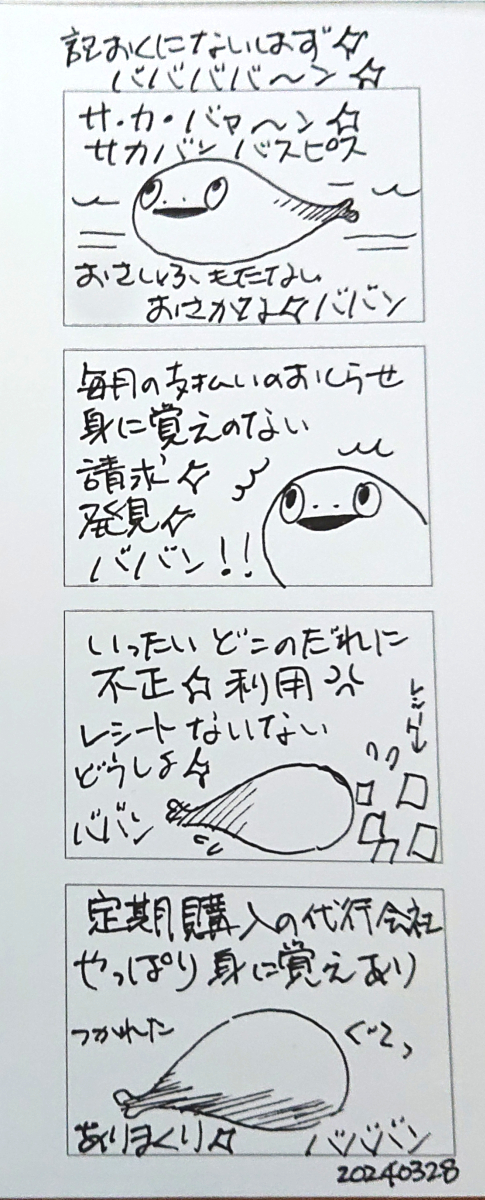 記おくにないはず☆
ババババ〜ン☆
サ・カ・バァ〜ン☆
サカバンバスピス
おさいふもたない
おさかな☆ババン
毎月の支払いのおしらせ
身に覚えのない
請求☆
発見☆
ババン!!
いったいどこのだれに
不正☆利用
レシートないない
どうしよ☆
ババン
レシート↓
定期購入の代行会社
やっぱり身に覚えあり
つかれた
ぐてっ
ありまくり☆
バババン
20240328